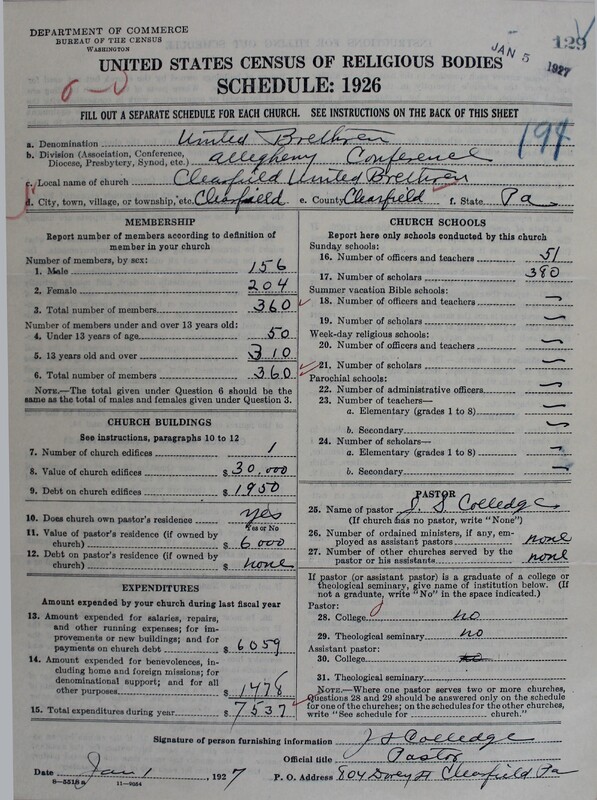 DEPARTMENT OF COMMERCE
BUREAU OF THE CENSUS
WASHINGTON
JAN 5 1927
129
UNITED STATES CENSUS OF RELIGIOUS BODIES
SCHEDULE: 1926
FILL OUT A SEPARATE SCHEDULE FOR EACH CHURCH. SEE INSTRUCTIONS ON THE BACK OF THIS SHEET
194
a. Denomination United Brethren
b. Division (Association, Conference, Diocese, Presbytery, Synod, etc.) Allegheny Conference
c. Local name of church Clearfield United Brethren
d. City, town, village, or township, etc. Clearfield e. County Clearfield f. State Pa
MEMBERSHIP
Report number of members according to definition of
member in your church
Number of members, by sex:
1. Male 156
2. Female 204
3. Total number of members 360
Number of members under and over 13 years old:
4. Under 13 years of age 50
5. 13 years old and over 310
6. Total number of members 360
NOTE.—The total given under Question 6 should be the
same as the total of males and females given under Question 3.
CHURCH BUILDINGS
See instructions, paragraphs 10 to 12
7. Number of church edifices 1
8. Value of church edifices $ 30,000
9. Debt on church edifices $ 1950
10. Does church own pastor's residence yes
Yes or No
11. Value of pastor's residence (if owned by
church) $ 6000
12. Debt on pastor's residence (if owned by
church) $ none
EXPENDITURES
Amount expended by your church during last fiscal year
13. Amount expended for salaries, repairs,
and other running expenses; for im-
provements or new buildings; and for
payments on church debt $ 6059
14. Amount expended for benevolences, in-
cluding home and foreign missions; for
denominational support; and for all
other purposes $ 1478
15. Total expenditures during year $ 7537
CHURCH SCHOOLS
Report here only schools conducted by this church
Sunday schools:
16. Number of officers and teachers 51
17. Number of scholars 380
Summer vacation Bible schools:
18. Number of officers and teachers —
19. Number of scholars —
Week-day religious schools:
20. Number of officers and teachers —
21. Number of scholars —
Parochial schools:
22. Number of administrative officers —
23. Number of teachers—
a. Elementary (grades 1 to 8) —
b. Secondary —
24. Number of scholars—
a. Elementary (grades 1 to 8) —
b. Secondary —
PASTOR
25. Name of pastor J. S. Colledge
(If church has no pastor, write "None")
26. Number of ordained ministers, if any, em-
ployed as assistant pastors none
27. Number of other churches served by the
pastor or his assistants none
If pastor (or assistant pastor) is a graduate of a college or
theological seminary, give name of institution below. (If
not a graduate, write "No" in the space indicated.)
Pastor:
28. College no
29. Theological seminary no
Assistant pastor:
30. College
31. Theological seminary
NOTE.—Where one pastor serves two or more churches,
Questions 28 and 29 should be answered only on the schedule
for one of the churches; on the schedules for the other churches,
write "See schedule for church."
Signature of person furnishing information J S Colledge
Official title Pastor
Date Jan 1, 1927 P. O. Address 804 Dorey St Clearfield Pa
8—5518a 11—9064